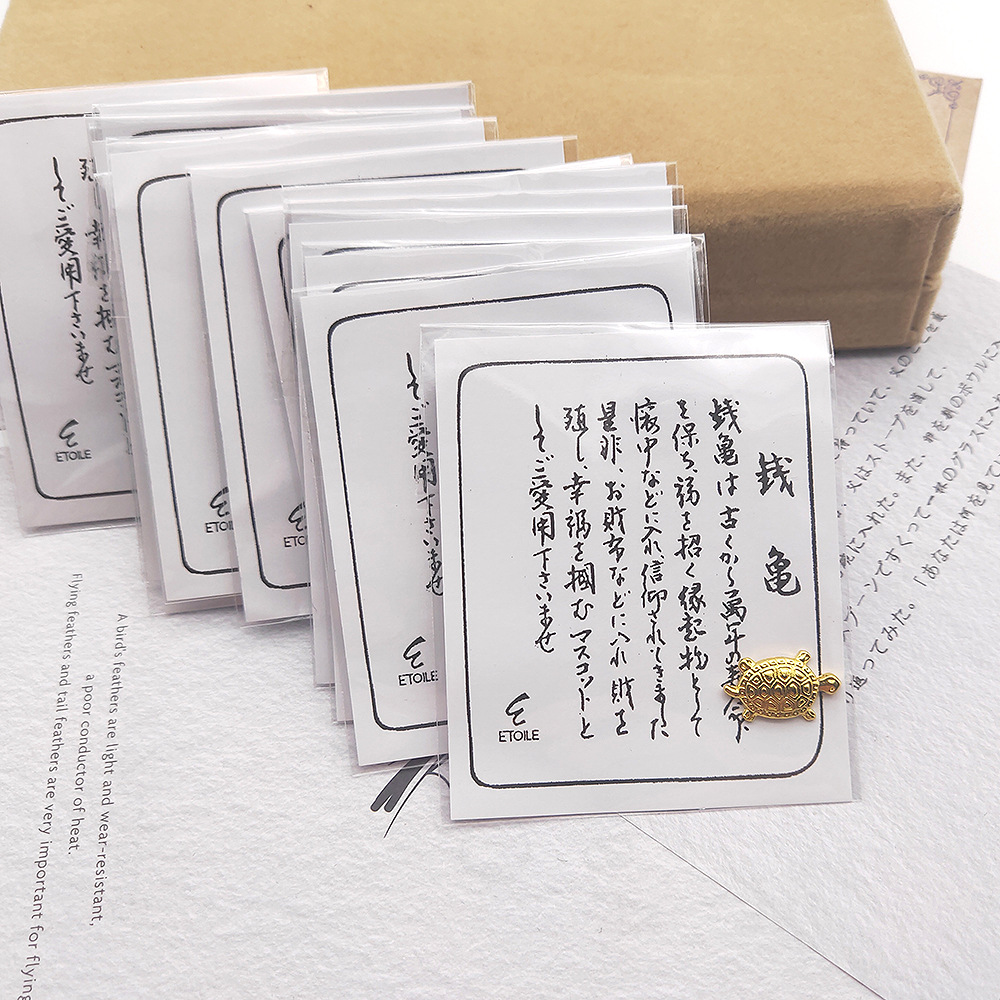 してご愛用下さいませ
ETOILE
ETOILE
してご愛用下さいませ
ETOILE
銭亀
銭亀は古くから萬年の寿命
を保ち、福を招く縁起物として
懐中などに入れ信仰されてきました
是非、お財布などに入れ財を
殖し、幸福を掴むマスコットと
してご愛用下さいませ
ETOILE
A bird's feathers are light and wear-resistant,
a poor conductor of heat.
Flying feathers and tail feathers are very important for flying
父はストーブを消して、
に入れた。また、卵を別のボウルに入
スプーンですくって一杯のグラスに入れ
返ってみた。「あなたは何を見てい